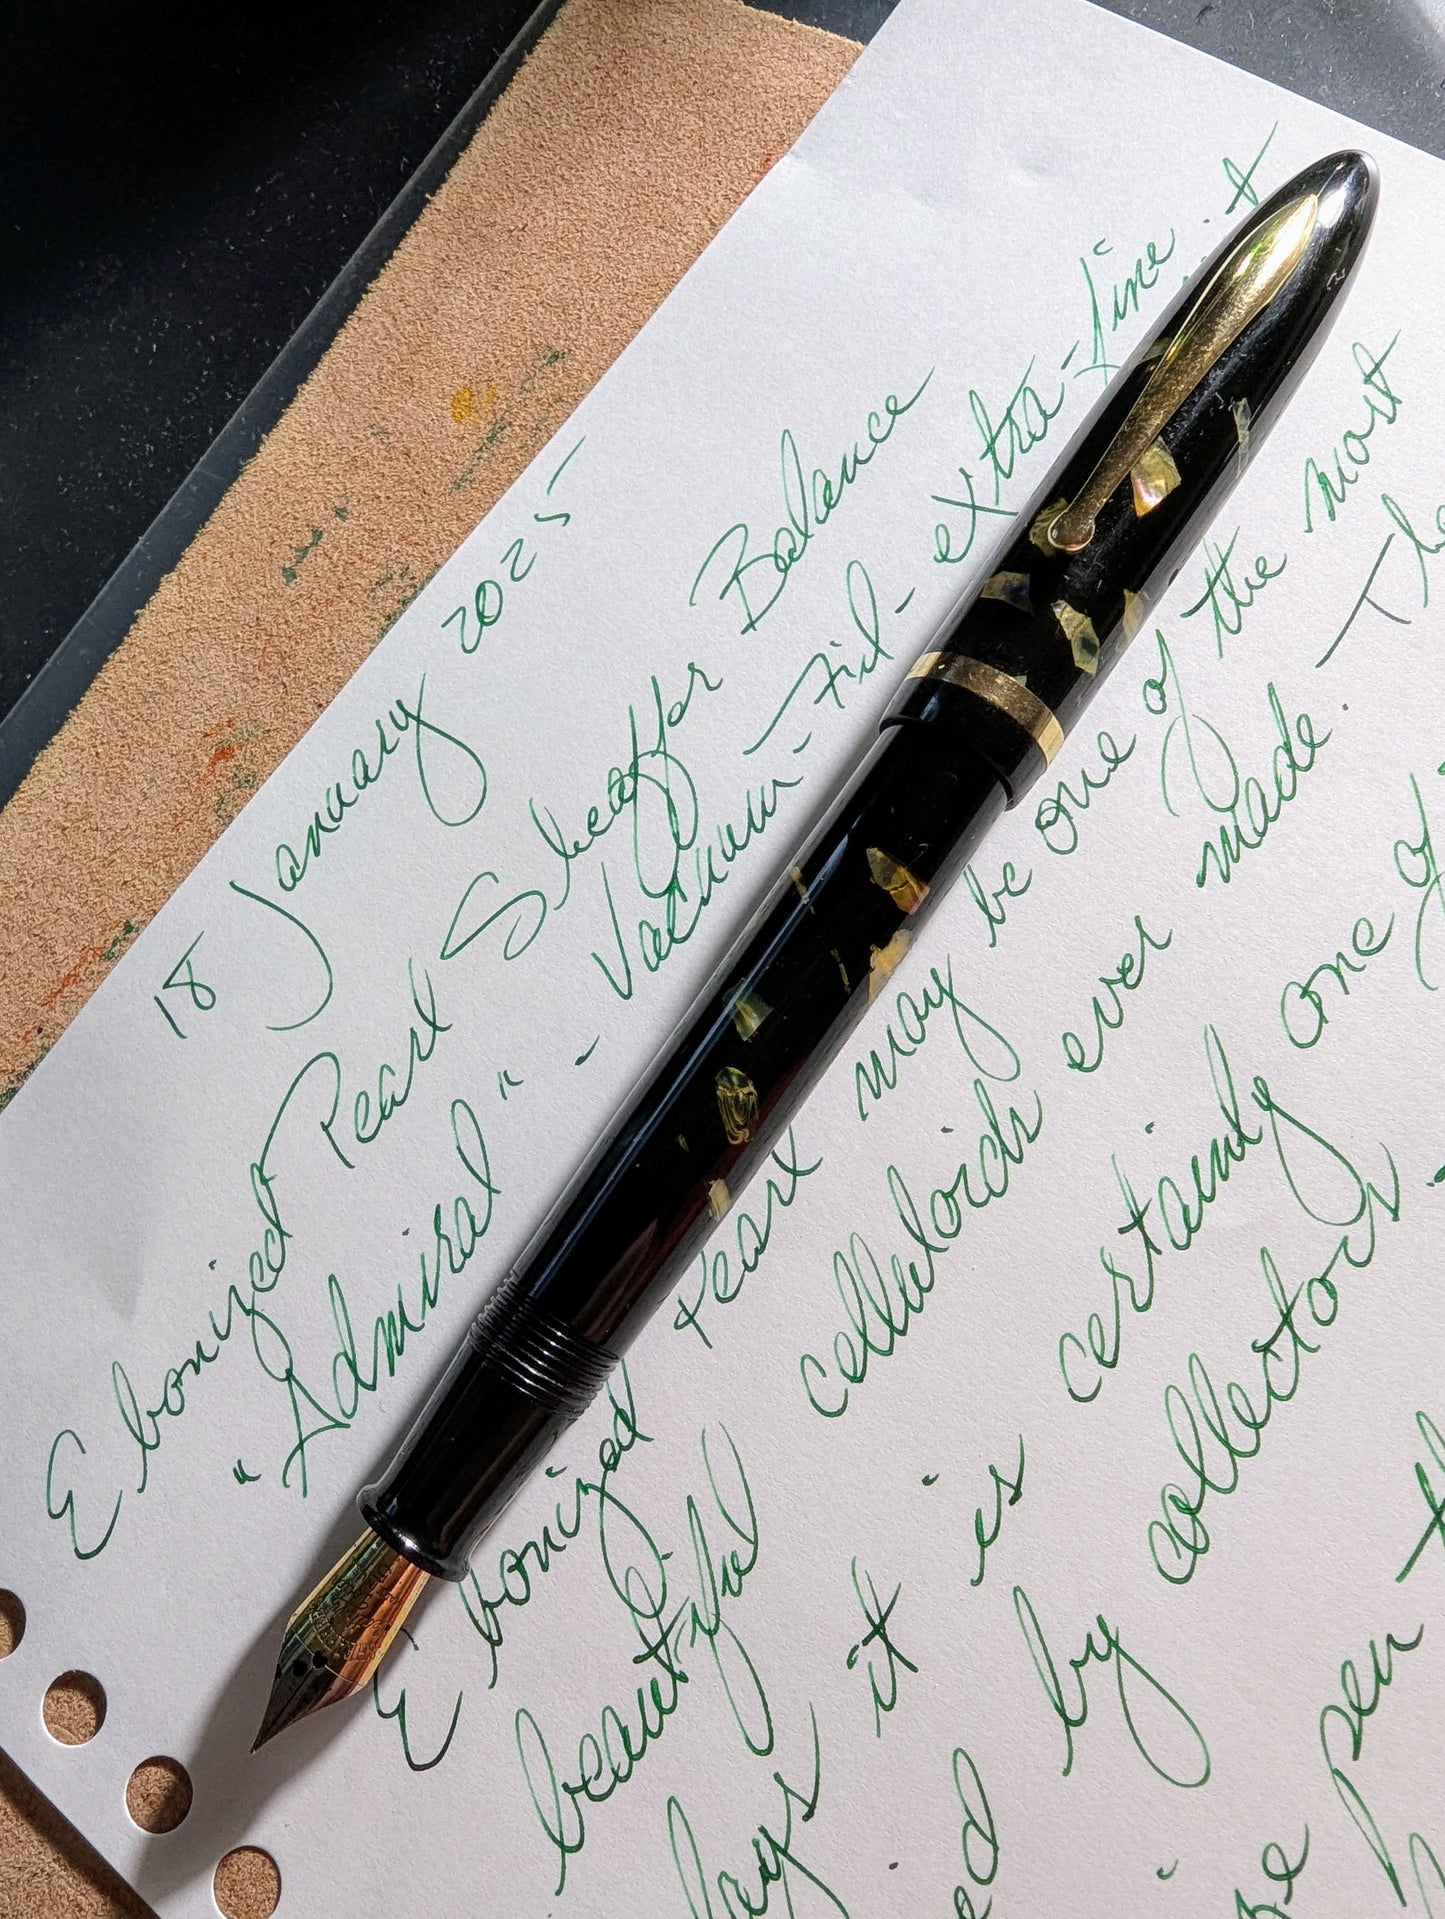 18 January 2025
Ebonized Pearl Sheaffer Balance
"Admiral" - Vacuum-Fil - extra-fine
Ebonized Pearl may be one of the most
beautiful celluloids ever made. The
days it is certainly one of
ed by collectors.
pen